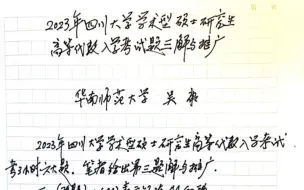 2023年四川大学学术型硕士研究生
高等代数入学考试题三解与推广
华南师范大学 吴
2023年四川大学学术型硕士研究生高等代数入学考试
六大题,笔者给出第三题解与推广.